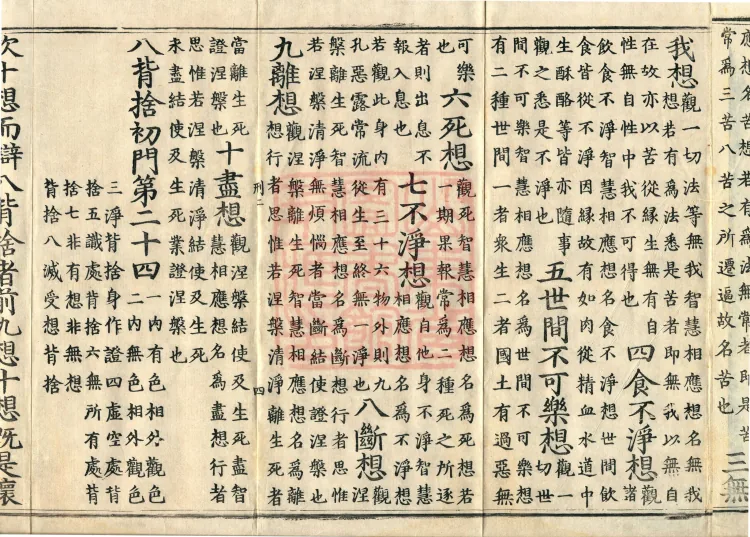 應想名苦想若有為法無常者即是苦
常為三苦八苦之所遷逼故名苦也
三無
我想
觀一切法等無我智慧相應想名無我
想若有為法悉是苦者即無我以無自
在故亦以苦從緣生無有自
性無自性中我不可得也
四食不淨想
觀
諸
飲食不淨智慧相應想名食不淨想世間飲
食皆從不淨因緣故有如肉從精血水道中
生酥酪等皆亦隨事
觀之悉是不淨也
五世間不可樂想
觀一
切世
間不可樂智慧相應想名為世間不可樂想
有二種世間一者衆生二者國土有過惡無
可樂
也
六死想
觀死智慧相應想名為死想若
一期果報常為二種死之所逐
者則出息不
報入息也
七不淨想
觀自他身不淨智慧
相應想名為不淨想
若觀此身內有三十六物外則九
孔惡露常流從生至終無一淨也
八斷想
觀
涅
槃離生死智慧相應想名為斷想行者思惟
若涅槃清淨無煩惱者當斷結使證涅槃也
九離想
觀涅槃離生死智慧相應想名為離
想行者思惟若涅槃清淨離生死者
刑二
四
當離生死
證涅槃也
十盡想
觀涅槃結使及生死盡智
慧相應想名為盡想行者
思惟若涅槃清淨結使及生死
未盡結使及生死業證涅槃也
八背捨初門第二十四
一內有色相外觀色
二內無色相外觀色
三淨背捨身作證四虛空處背
捨五識處背捨六無所有處背
捨七非有想非無想
背捨八滅受想背捨
次十想而辯八背捨者前九想十想既是壞